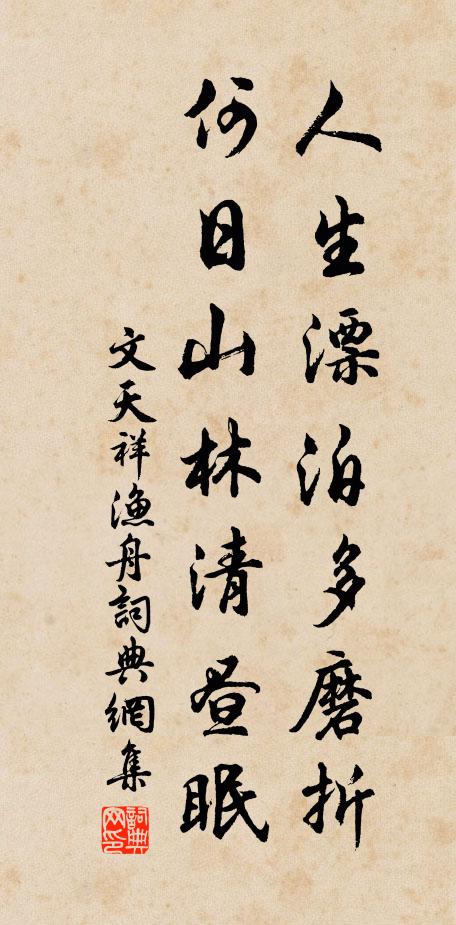 人生漂泊多磨折
何日山林清昼眠
文天祥渔舟詞典網集
詞典网印